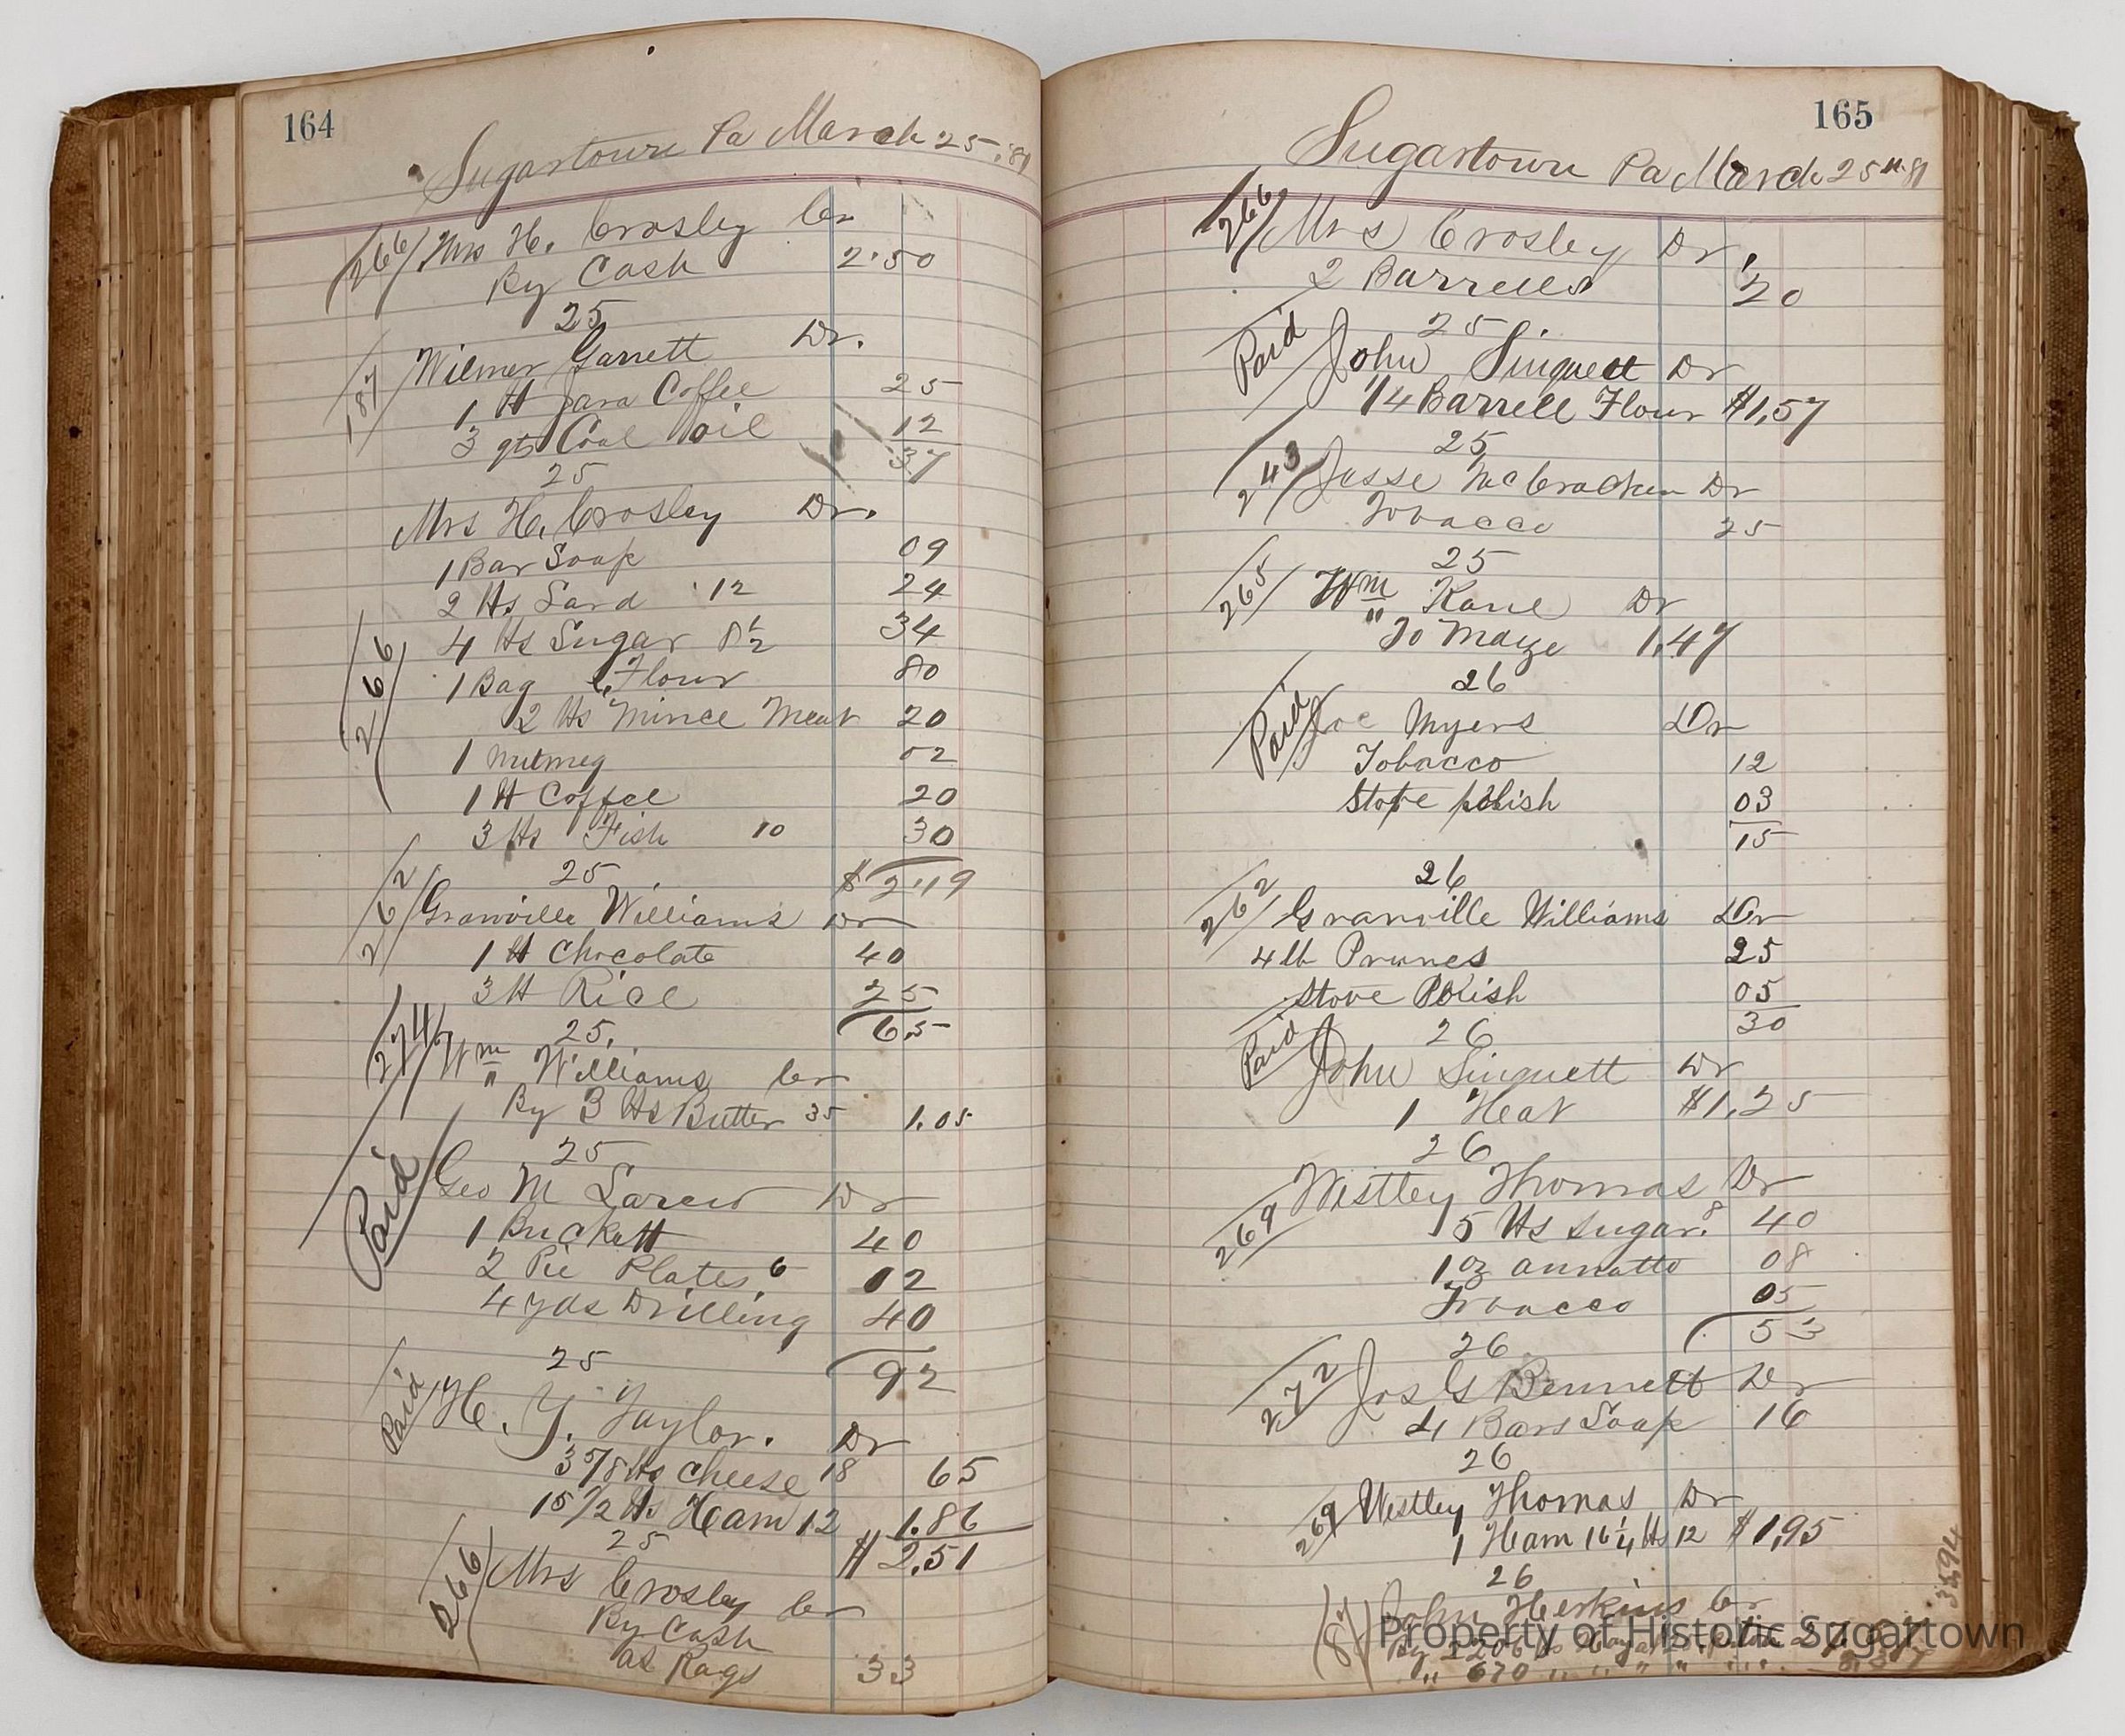 164
Sugartown Pa March 25, '81
266 Mrs H. Crosley Cr
By Cash 2.50
25
187 Wilmer Garrett Dr.
1 lb Java Coffee 25
3 qts Coal oil 12
37
25
Mrs H. Crosley Dr.
1 Bar Soap 09
2 lbs Lard 12 24
266 4 lbs Sugar 8 1/2 34
1 Bag Flour 80
2 lbs Mince Meat 20
1 nutmeg 02
1 lb Coffee 20
3 lbs Fish 10 30
25 $2.19
262 Granville Williams Dr
1 lb Chocolate 40
3 lb Rice 25
25. 65
274 Wm Williams Cr
By 3 lbs Butter 35 1.05
25
Paid Geo M Larew Dr
1 Buckett 40
2 Pie Plates 6 12
4 yds Drilling 40
25 92
Paid H. Y. Taylor. Dr
3 5/8 lbs Cheese 18 65
15 1/2 lbs Ham 12 1.86
25 $2.51
266 Mrs Crosley Cr
By Cash
as Rags 33
165
Sugartown Pa March 25th 81
266 Mrs Crosley Dr.
2 Barrells 20
25
Paid John Singuett Dr
1/4 Barrell Flour $1,57
25
243 Jesse McCracken Dr
Tobacco 25
25
265 Wm Kane Dr
To Maize 1,47
26
Paid Joe Myers Dr
Tobacco 12
Stove polish 03
15
26
262 Granville Williams Dr
4 lb Prunes 25
Stove Polish 05
30
26
Paid John Singuett Dr
1 Heat $1,25
26
Westley Thomas Dr
269 5 lbs sugar. 8 40
1 oz annatto 08
Tobacco 05
53
26
272 Jos G Bennett Dr
4 Bars Soap 16
26
269 Westley Thomas Dr
1 Ham 16 1/4 lbs 12 $1,95
26
John Herkins Cr
By
" 670 " " " "
Property of Historic Sugartown